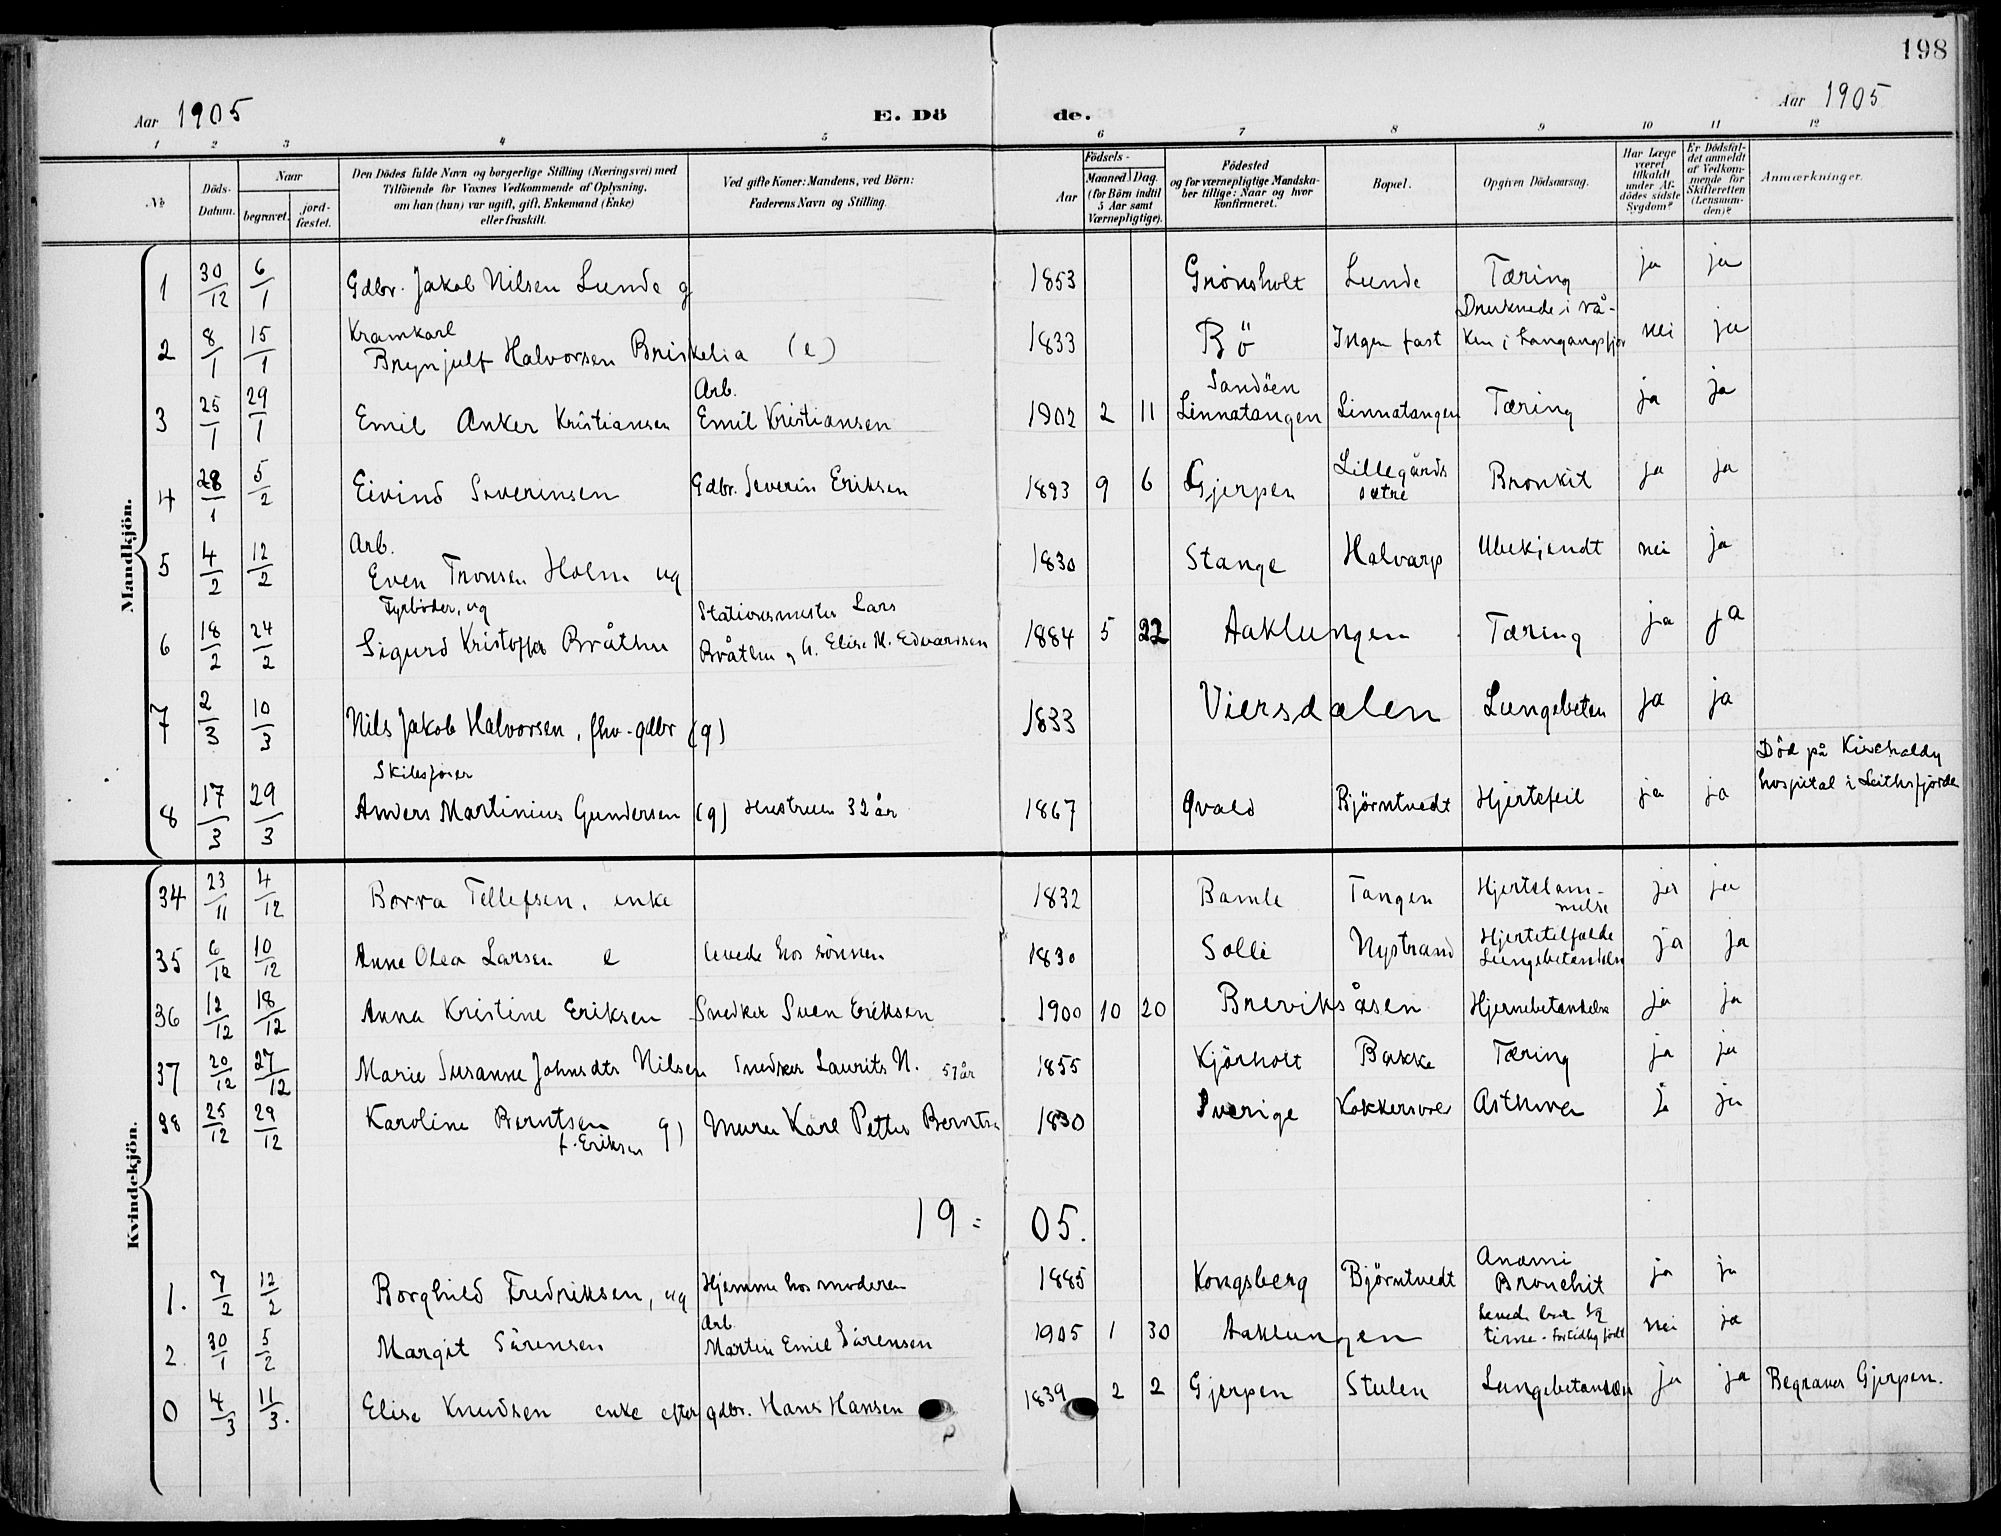 198
Aar 1905 E. Dö de. Aar 1905
1 2 3 4 5 6 7 8 9 10 11 12
№ Döds-Datum. Naar begravet. jord-fæstet. Den Dödes fulde Navn og borgerlige Stilling (Næringsvei) med Tilföiende for Voxnes Vedkommende af Oplysning, om han (hun) var ugift, gift, Enkemand (Enke) eller fraskilt. Ved gifte Koner: Mandens, ved Börn: Faderens Navn og Stilling. Födsels- Aar Maaned Dag. (for Börn indtil 5 Aar samt Værnepligtige). Födested og for værnepligtige Mandskaber tillige: Naar og hvor konfirmeret. Bopæl. Opgiven Dödsaarsag. Har Læge været tilkaldt under Afdödes sidste Sygdom? Er Dödsfaldet anmeldt af Vedkommende for Skifteretten (Lensmanden)? Anmærkninger.
Mandkjön.
1 30/12 6/1 Gdbr. Jakob Nilsen Lunde g 1853 Grönsholt Lunde Tæring ja ja
2 8/1 15/1 Kramkarl Brynjulf Halvorsen Briskelia (e) 1833 Bö Ingen fast Druknede i Vå-ken i Langangsfjor nei ja
3 25/1 29/1 Emil Anker Kristiansen Arb. Emil Kristiansen 1902 2 11 Sandöen Linnatangen Linnatangen Tæring ja ja
4 28/1 5/2 Eivind Severinsen Gdbr. Severin Eriksen 1893 9 6 Gjerpen Lillegårds sætre Bronkit ja ja
5 4/2 12/2 Arb. Even Tronsen Holm ug 1830 Stange Halvarp Ubekjendt nei ja
6 18/2 24/2 Fyrböder, ug Sigurd Kristoffer Bråthen Stationsmester Lars Bråthen og h. Elise M. Edvardsen 1884 5 22 Aaklungen Tæring ja ja
7 2/3 10/3 Nils Jakob Halvorsen, fhv. gdbr (g) 1833 Viersdalen Lungebeten ja ja
8 17/3 29/3 Skibsförer Anders Martinius Gundersen (g) Hustruen 32 år 1867 Qvald Björntvedt Hjertefeil ja ja Död på Kirchaldy hospital i Leithsfjorde
Kvindekjön.
34 23/11 4/12 Borra Tellefsen, enke 1832 Bamle Tangen Hjertelam-melse ja ja
35 6/12 10/12 Anne Olea Larsen e levede hos sönnen 1830 Solli Nystrand Hjertetilfælde Lungebetændelse ja ja
36 12/12 18/12 Anna Kristine Eriksen Snedker Sven Eriksen 1900 10 20 Breviksåsen Hjernebetændelse ja ja
37 20/12 27/12 Marie Susanne Johnsdtr Nilsen Snedker Laurits N. 51 år 1855 Kjörholt Bakke Tæring ja ja
38 25/12 29/12 Karoline Berntsen f. Eriksen g) Murer Karl Petter Berntsen 1830 Sverige Kokkersvol Asthma ja
19 = 05.
1. 7/2 12/2 Borghild Fredriksen, ug Hjemme hos moderen 1885 Kongsberg Björntvedt Anæmi Bronchit ja ja
2. 30/1 5/2 Margit Sörensen Arb. Martin Emil Sörensen 1905 1 30 Aaklungen Levede bare 1/2 time - Fortidlig födt nei ja
0 4/3 11/3. Elise Knudsen enke efter gdbr. Hans Hansen 1839 2 2 Gjerpen Stulen Lungebetændelse ja ja Begraves Gjerpen.